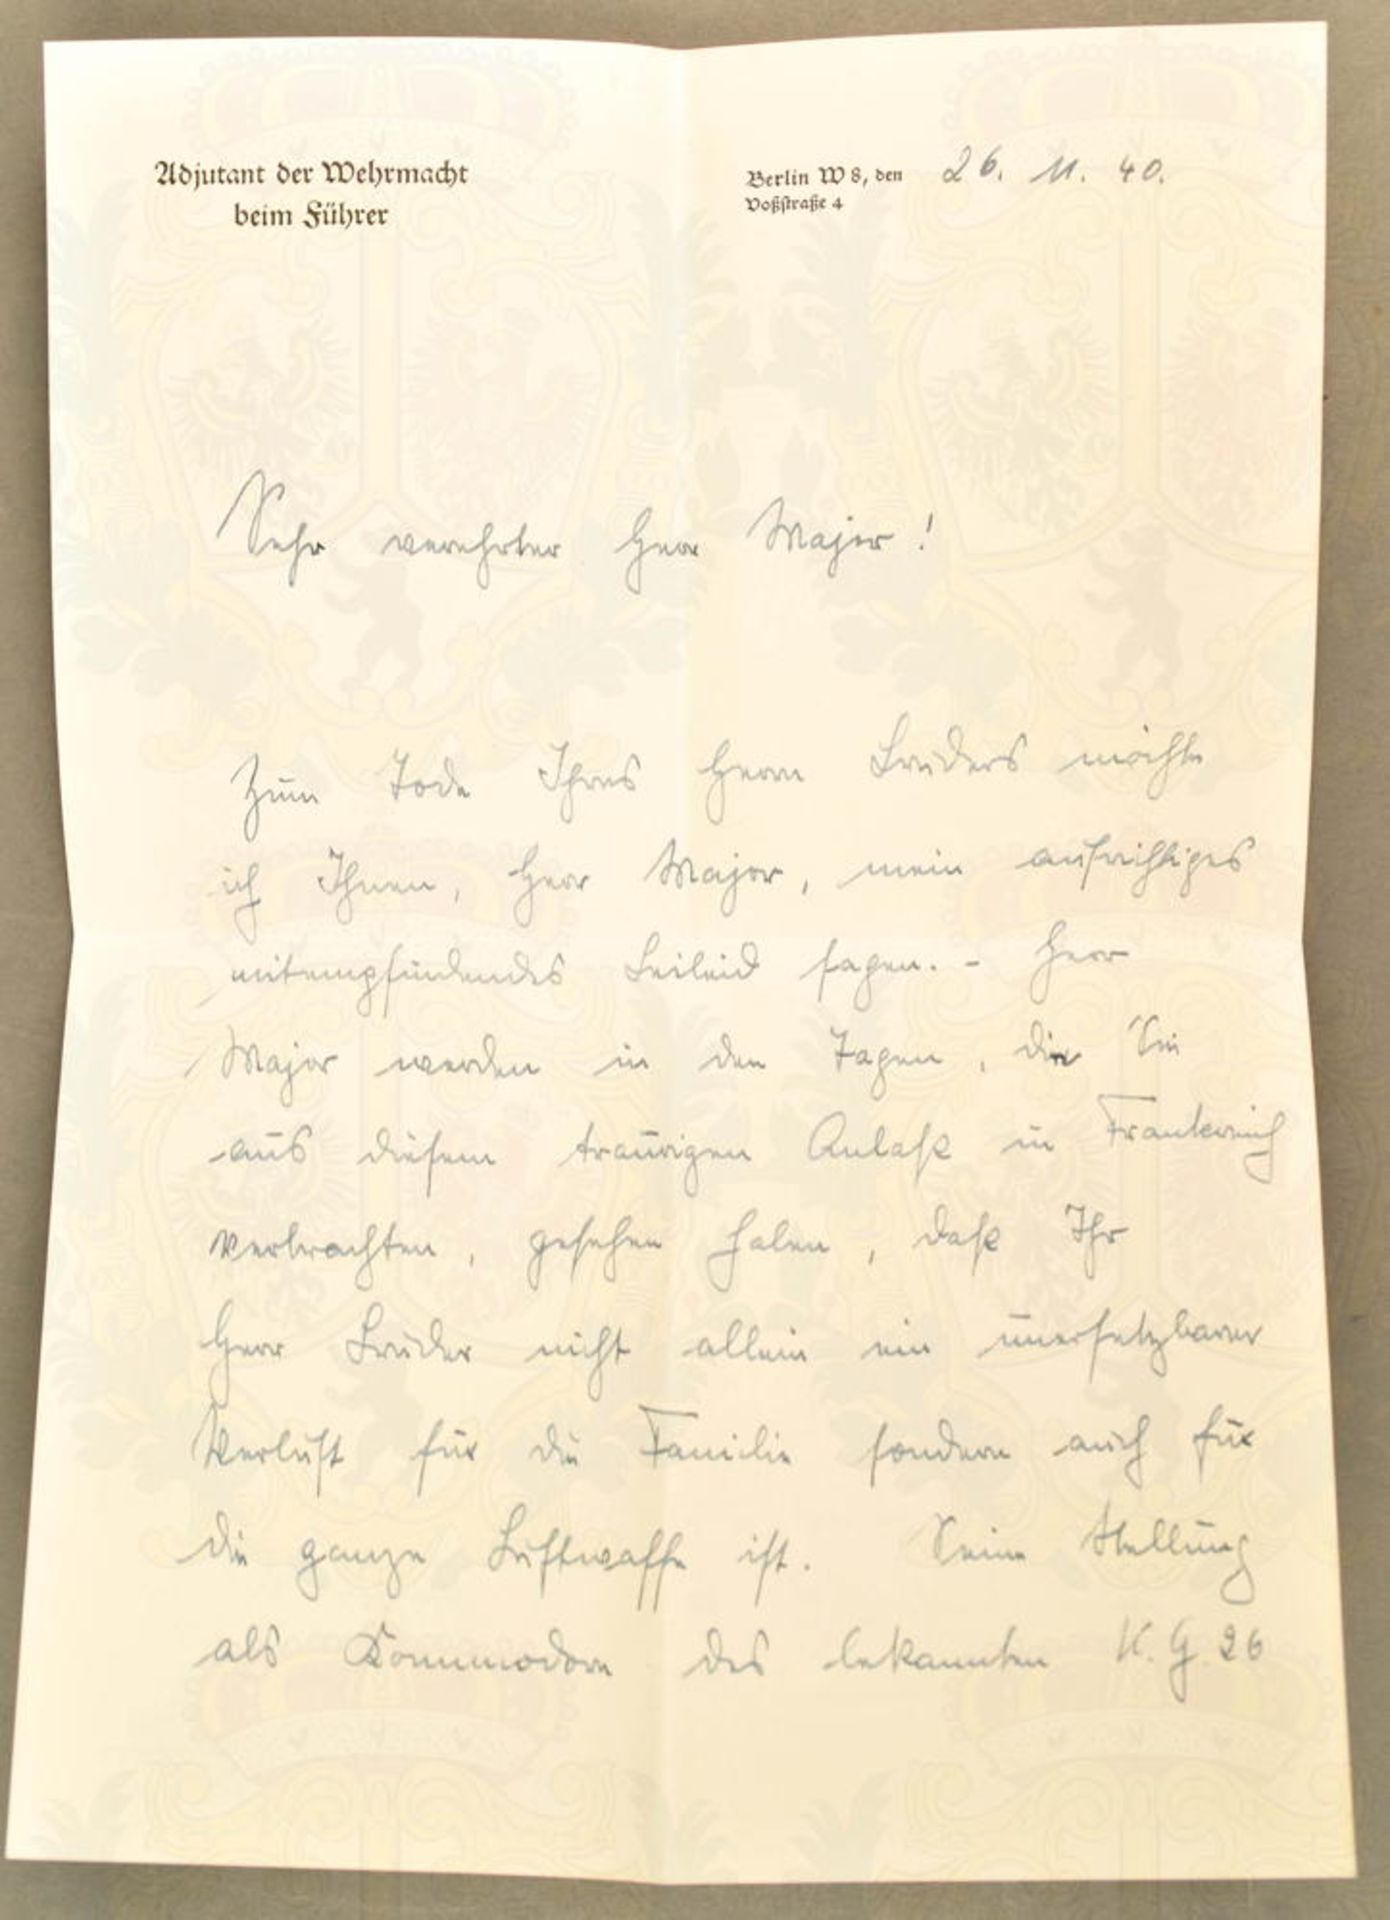 Adjutant der Wehrmacht
beim Führer
Berlin W 8, den 26. 11. 40.
Voßstraße 4
Sehr verehrter Herr Major!
Zum Tode Ihres Herrn Bruders möchte
ich Ihnen, Herr Major, mein aufrichtiges
mitempfindendes Beileid sagen. - Herr
Major werden in den Tagen, die Sie
aus diesem traurigen Anlaß in Frankreich
verbrachten, gesehen haben, daß Ihr
Herr Bruder nicht allein ein unersetzbarer
Verlust für die Familie sondern auch für
die ganze Luftwaffe ist. Seine Stellung
als Kommodore des bekannten K.G 26